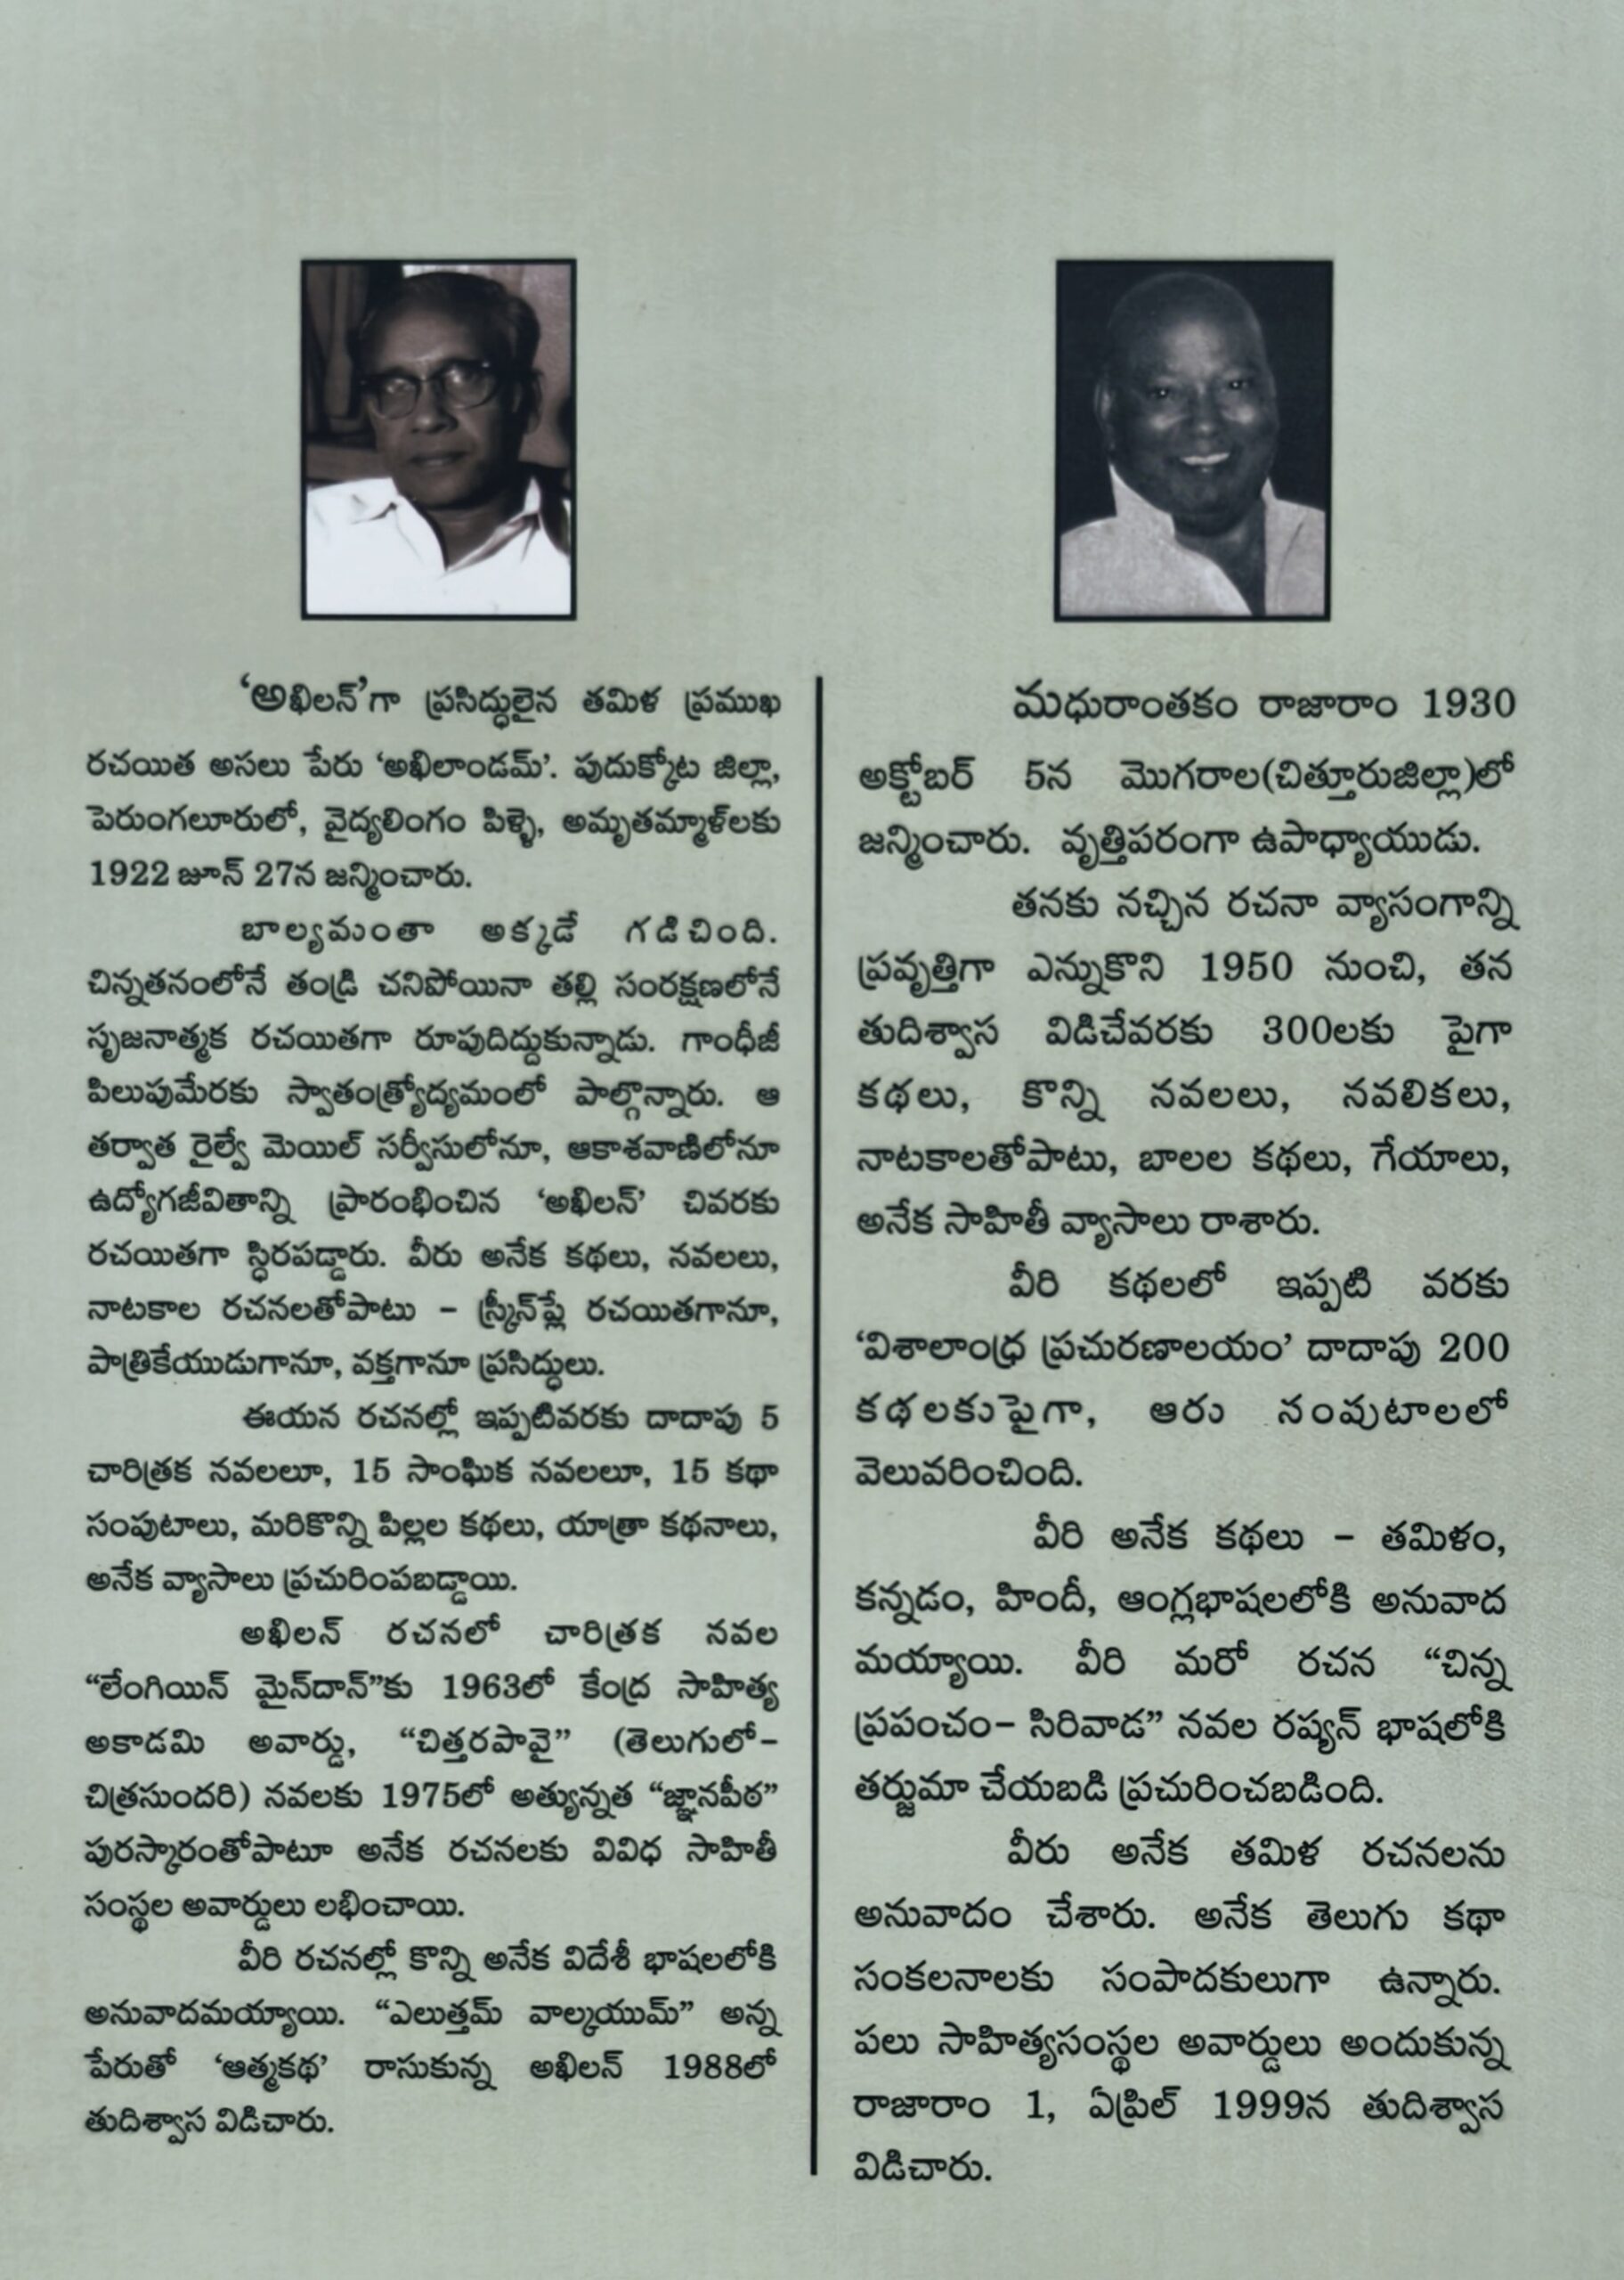 ‘అఖిలన్’గా ప్రసిద్ధులైన తమిళ ప్రముఖ
రచయిత అసలు పేరు ‘అఖిలాండమ్’. పుదుక్కోట జిల్లా,
పెరుంగలూరులో, వైద్యలింగం పిళ్ళె, అమృతమ్మాళ్‌లకు
1922 జూన్ 27న జన్మించారు.
బాల్యమంతా అక్కడే గడిచింది.
చిన్నతనంలోనే తండ్రి చనిపోయినా తల్లి సంరక్షణలోనే
సృజనాత్మక రచయితగా రూపుదిద్దుకున్నాడు. గాంధీజీ
పిలుపుమేరకు స్వాతంత్ర్యోద్యమంలో పాల్గొన్నారు. ఆ
తర్వాత రైల్వే మెయిల్ సర్వీసులోనూ, ఆకాశవాణిలోనూ
ఉద్యోగజీవితాన్ని ప్రారంభించిన ‘అఖిలన్’ చివరకు
రచయితగా స్థిరపడ్డారు. వీరు అనేక కథలు, నవలలు,
నాటకాల రచనలతోపాటు – స్క్రీన్‌ప్లే రచయితగానూ,
పాత్రికేయుడుగానూ, వక్తగానూ ప్రసిద్ధులు.
ఈయన రచనల్లో ఇప్పటివరకు దాదాపు 5
చారిత్రక నవలలూ, 15 సాంఘిక నవలలూ, 15 కథా
సంపుటాలు, మరికొన్ని పిల్లల కథలు, యాత్రా కథనాలు,
అనేక వ్యాసాలు ప్రచురింపబడ్డాయి.
అఖిలన్ రచనలో చారిత్రక నవల
“లేంగియిన్ మైన్‌దాన్”కు 1963లో కేంద్ర సాహిత్య
అకాడమి అవార్డు, “చిత్తరపావై” (తెలుగులో–
చిత్రసుందరి) నవలకు 1975లో అత్యున్నత “జ్ఞానపీఠ”
పురస్కారంతోపాటూ అనేక రచనలకు వివిధ సాహితీ
సంస్థల అవార్డులు లభించాయి.
వీరి రచనల్లో కొన్ని అనేక విదేశీ భాషలలోకి
అనువాదమయ్యాయి. “ఎలుత్తమ్ వాల్కయుమ్” అన్న
పేరుతో ‘ఆత్మకథ’ రాసుకున్న అఖిలన్ 1988లో
తుదిశ్వాస విడిచారు.
మధురాంతకం రాజారాం 1930
అక్టోబర్ 5న మొగరాల(చిత్తూరుజిల్లా)లో
జన్మించారు. వృత్తిపరంగా ఉపాధ్యాయుడు.
తనకు నచ్చిన రచనా వ్యాసంగాన్ని
ప్రవృత్తిగా ఎన్నుకొని 1950 నుంచి, తన
తుదిశ్వాస విడిచేవరకు 300లకు పైగా
కథలు, కొన్ని నవలలు, నవలికలు,
నాటకాలతోపాటు, బాలల కథలు, గేయాలు,
అనేక సాహితీ వ్యాసాలు రాశారు.
వీరి కథలలో ఇప్పటి వరకు
‘విశాలాంధ్ర ప్రచురణాలయం’ దాదాపు 200
కథలకుపైగా, ఆరు సంపుటాలలో
వెలువరించింది.
వీరి అనేక కథలు – తమిళం,
కన్నడం, హిందీ, ఆంగ్లభాషలలోకి అనువాద
మయ్యాయి. వీరి మరో రచన “చిన్న
ప్రపంచం– సిరివాడ” నవల రష్యన్ భాషలోకి
తర్జుమా చేయబడి ప్రచురించబడింది.
వీరు అనేక తమిళ రచనలను
అనువాదం చేశారు. అనేక తెలుగు కథా
సంకలనాలకు సంపాదకులుగా ఉన్నారు.
పలు సాహిత్యసంస్థల అవార్డులు అందుకున్న
రాజారాం 1, ఏప్రిల్ 1999న తుదిశ్వాస
విడిచారు.